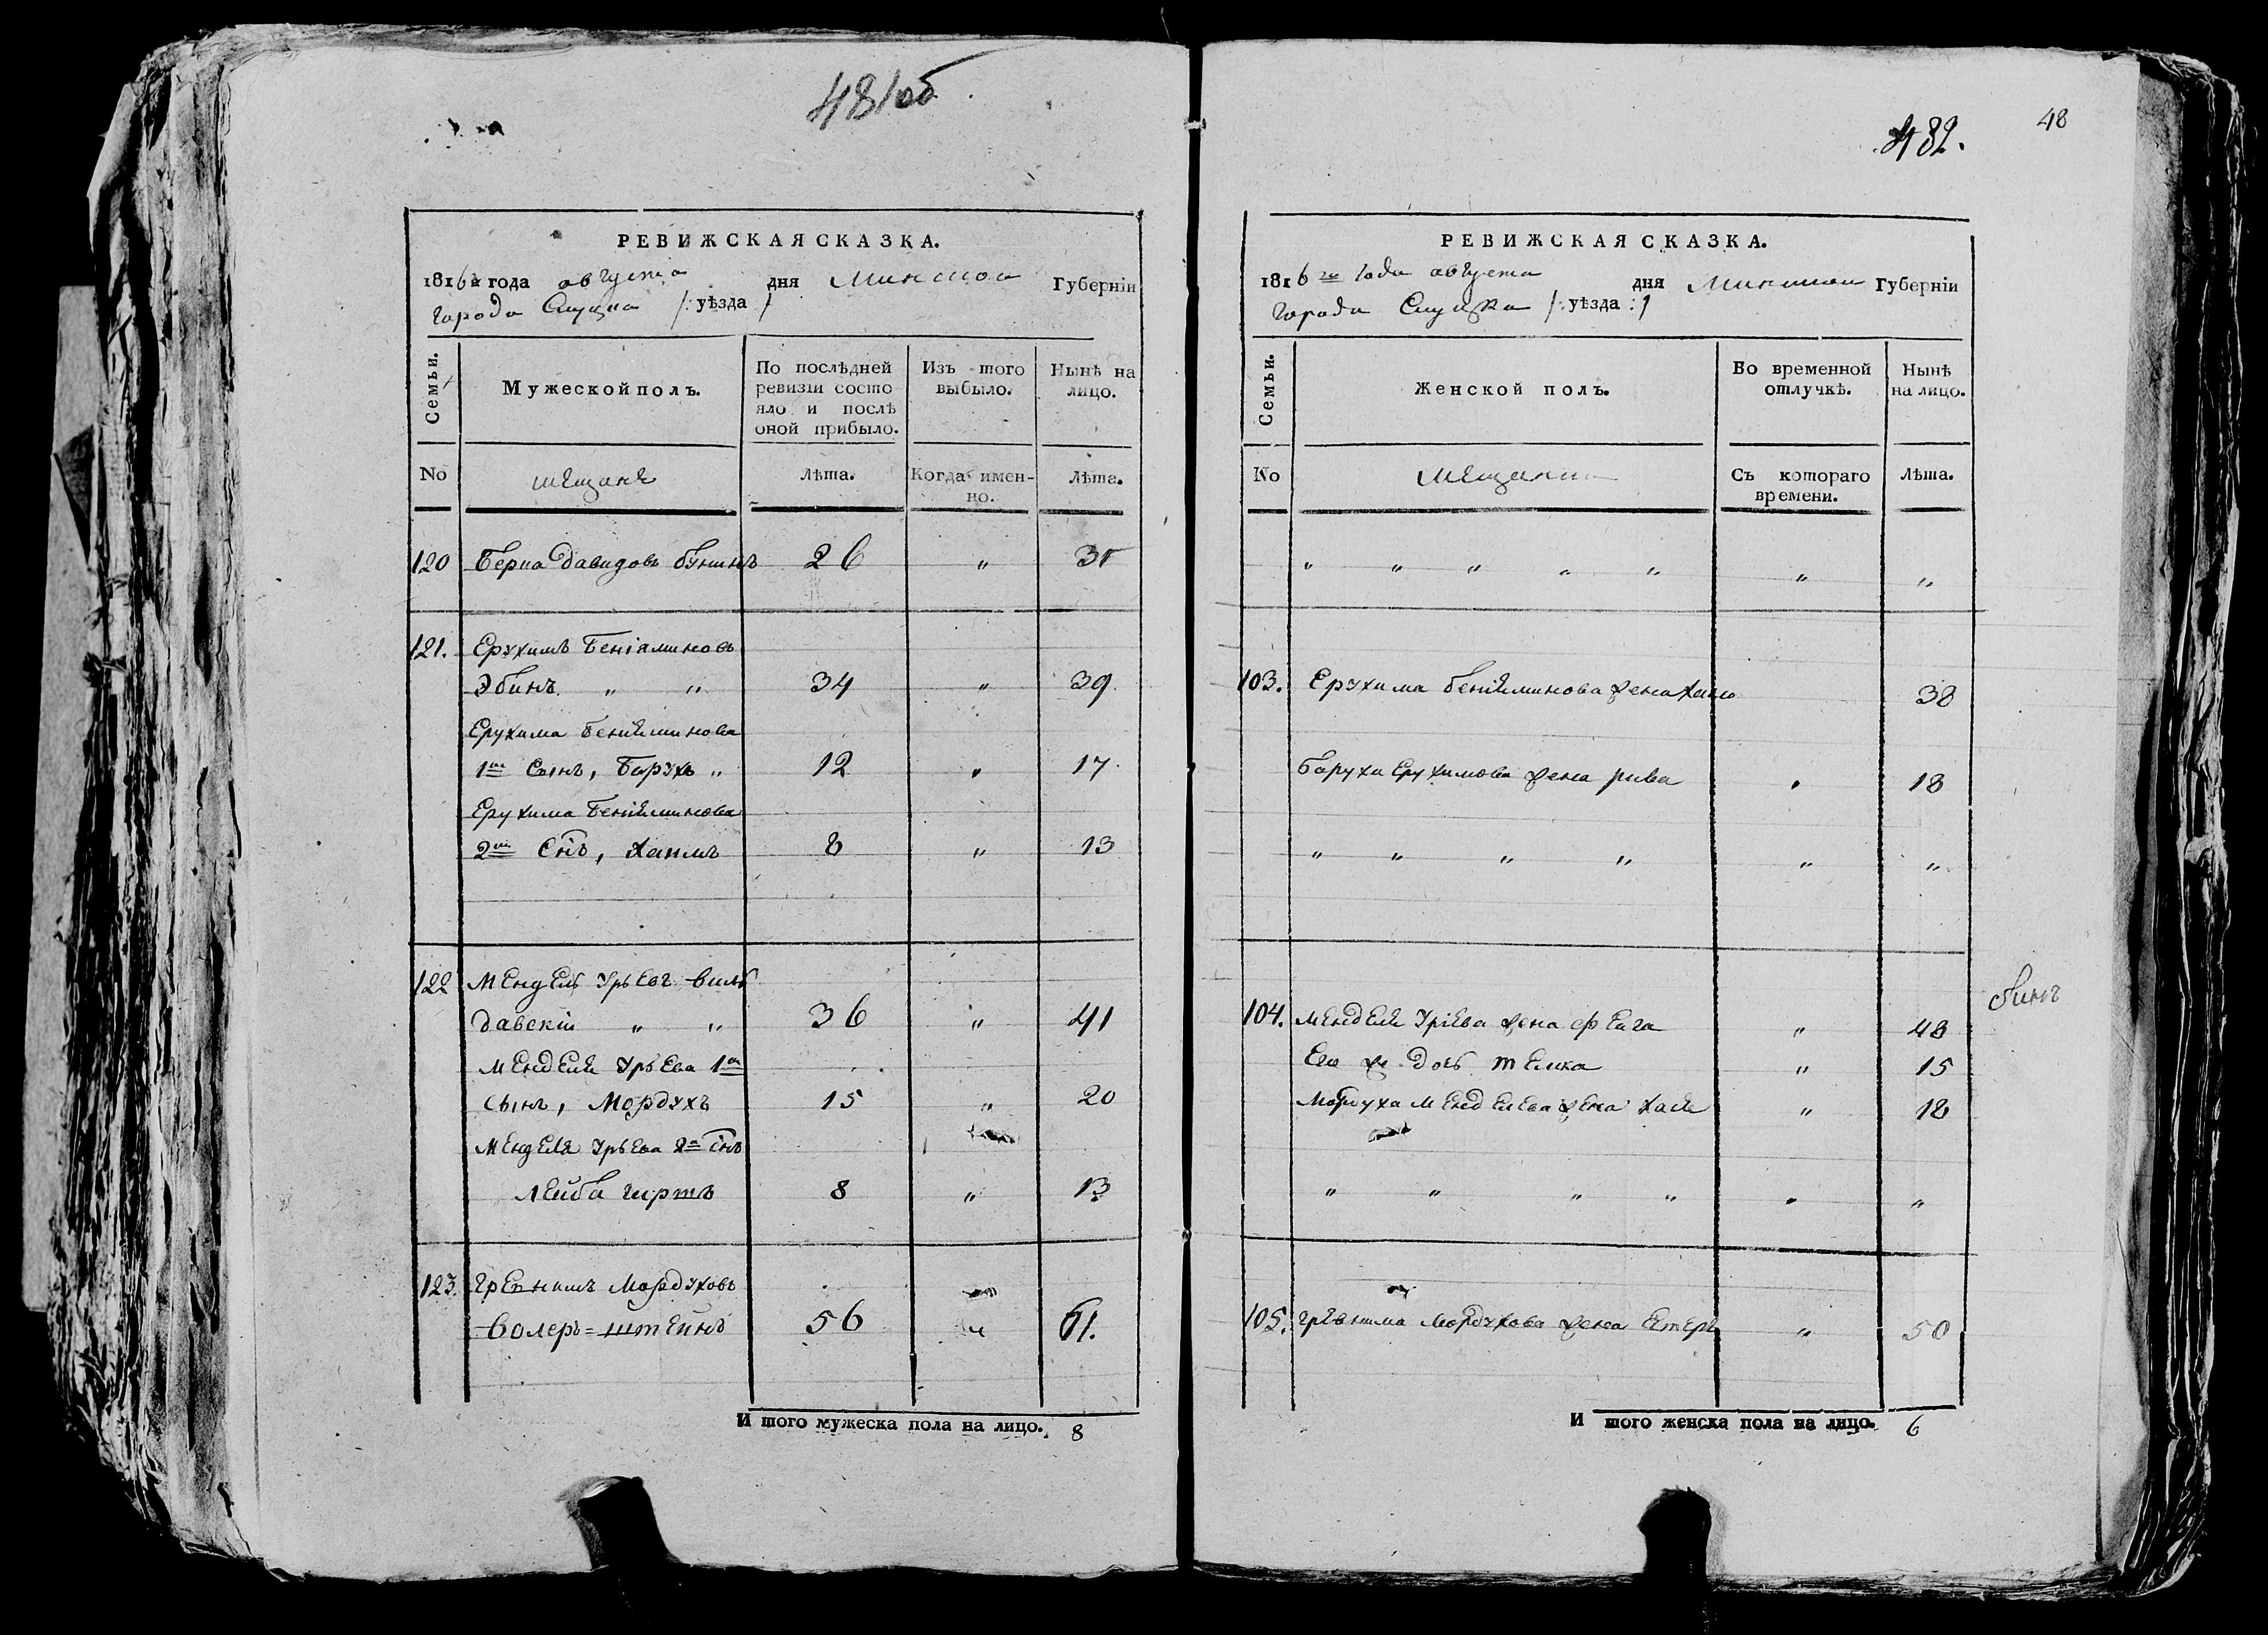 481 об
РЕВИЖСКАЯ СКАЗКА.
1816 го года августа дня Минской Губерніи
города Слуцка /: уѣзда :/
Семьи.
Мужеской полъ.
По послѣдней ревизіи состояло и послѣ оной прибыло.
Изъ того выбыло.
Нынѣ на лицо.
No
мещане
Лѣта.
Когда именно.
Лѣта.
120 Берка Давидовъ бунинъ 26 " 31
121. Ерухимъ Беніаминовъ
Эбинъ " " 34 " 39
Ерухима Бениаминова
1й Сынъ, Барухъ " 12 " 17
Ерухима Бениаминова
2й Снъ, Хаимъ 8 " 13
122 Мендель Урьевъ Виль
давскій " " 36 " 41
Менделя Урьева 1й
Сынъ, Мордухъ 15 " 20
Менделя Урьева 2й Снъ
Лейба гиртъ 8 " 13
123. Мордуховъ
штейнъ 56 " 61.
И того мужеска пола на лицо. 8
48
482.
РЕВИЖСКАЯ СКАЗКА.
1816 го года августа дня Минской Губерніи
города Слуцка /: уѣзда :/
Семьи.
Женской полъ.
Во временной отлучкѣ.
Нынѣ на лицо.
No
Мещанки
Съ котораго времени.
Лѣта.
" " " " " " "
103. Ерухима Бениаминова жена Хана 38
Баруха Ерухимова жена рива " 18
" " " " " "
104. Менделя Уріева жена фейга " 48
Его ж дочь телка " 15
Мордуха Менделева жена хася " 18
" " " " " "
105. Мордухова жена Естеръ " 50
И того женска пола на лицо. 6